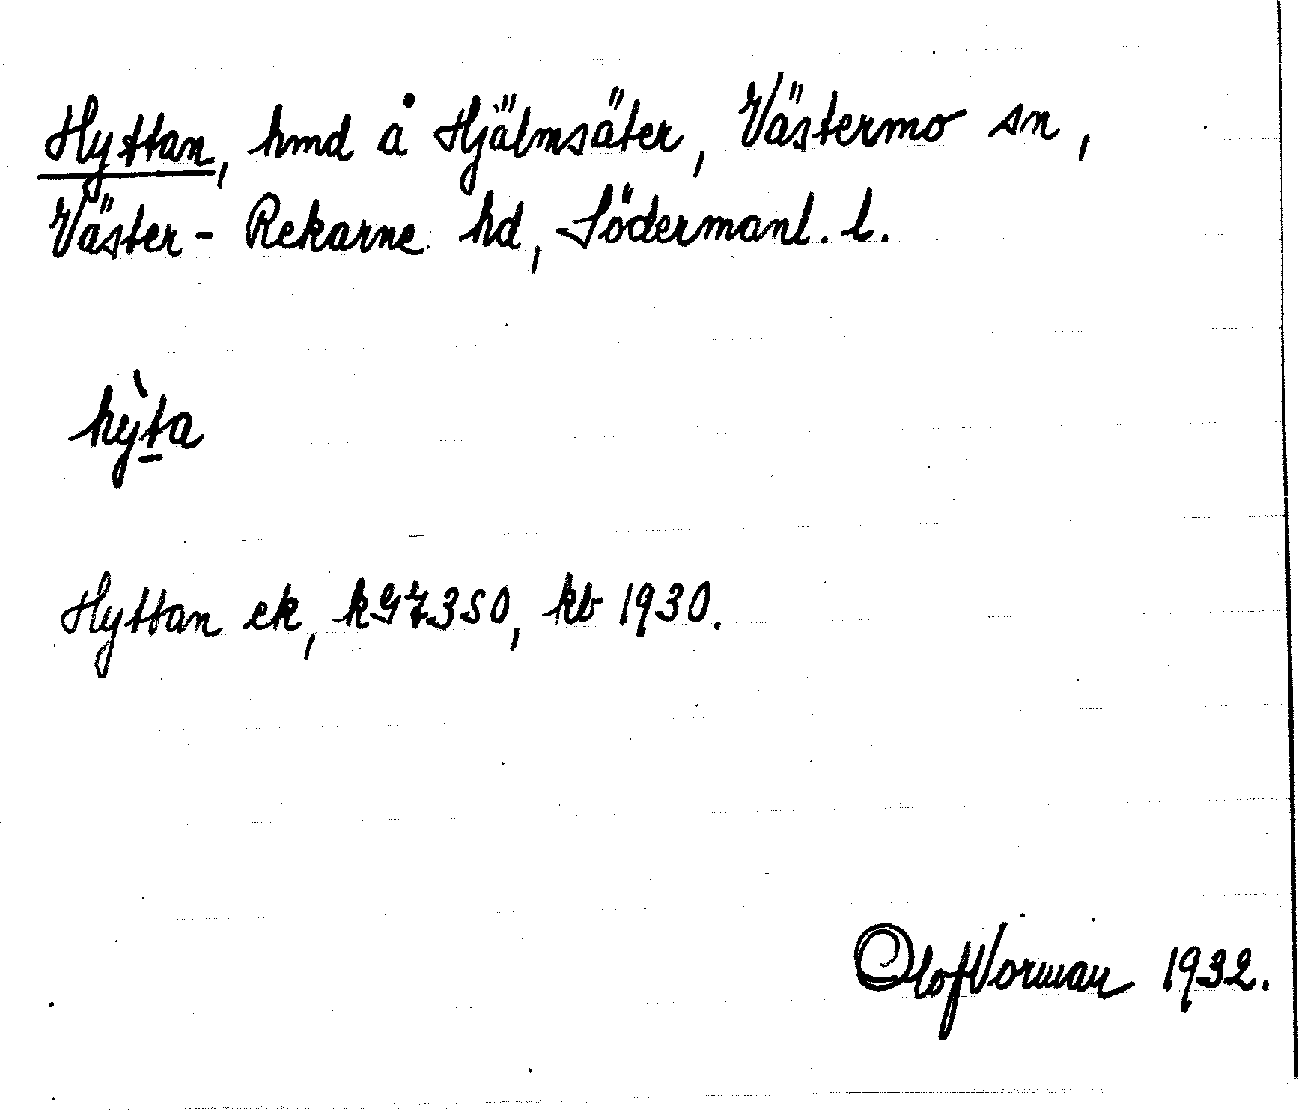 Hyttan, hmd å Hjälmsäter, Västermo sn,
Väster-Rekarne hd, Södermanl. l.
hy̆̀ta
Hyttan ek, kGZ350, kb 1930.
Olof Vorman 1932.